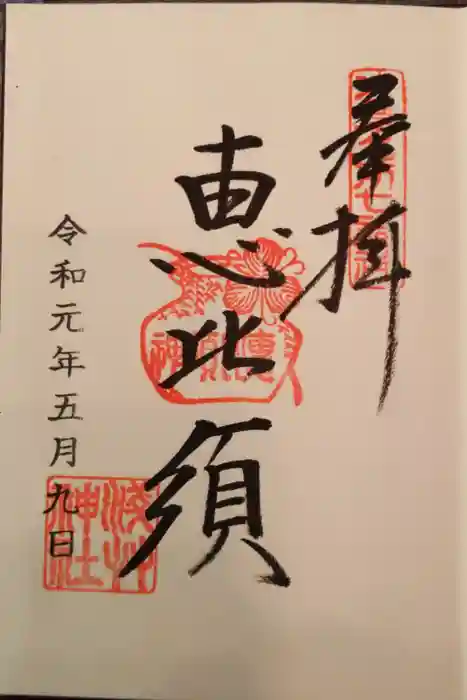 奉拝
恵比須
令和元年五月九日
浅草
神社